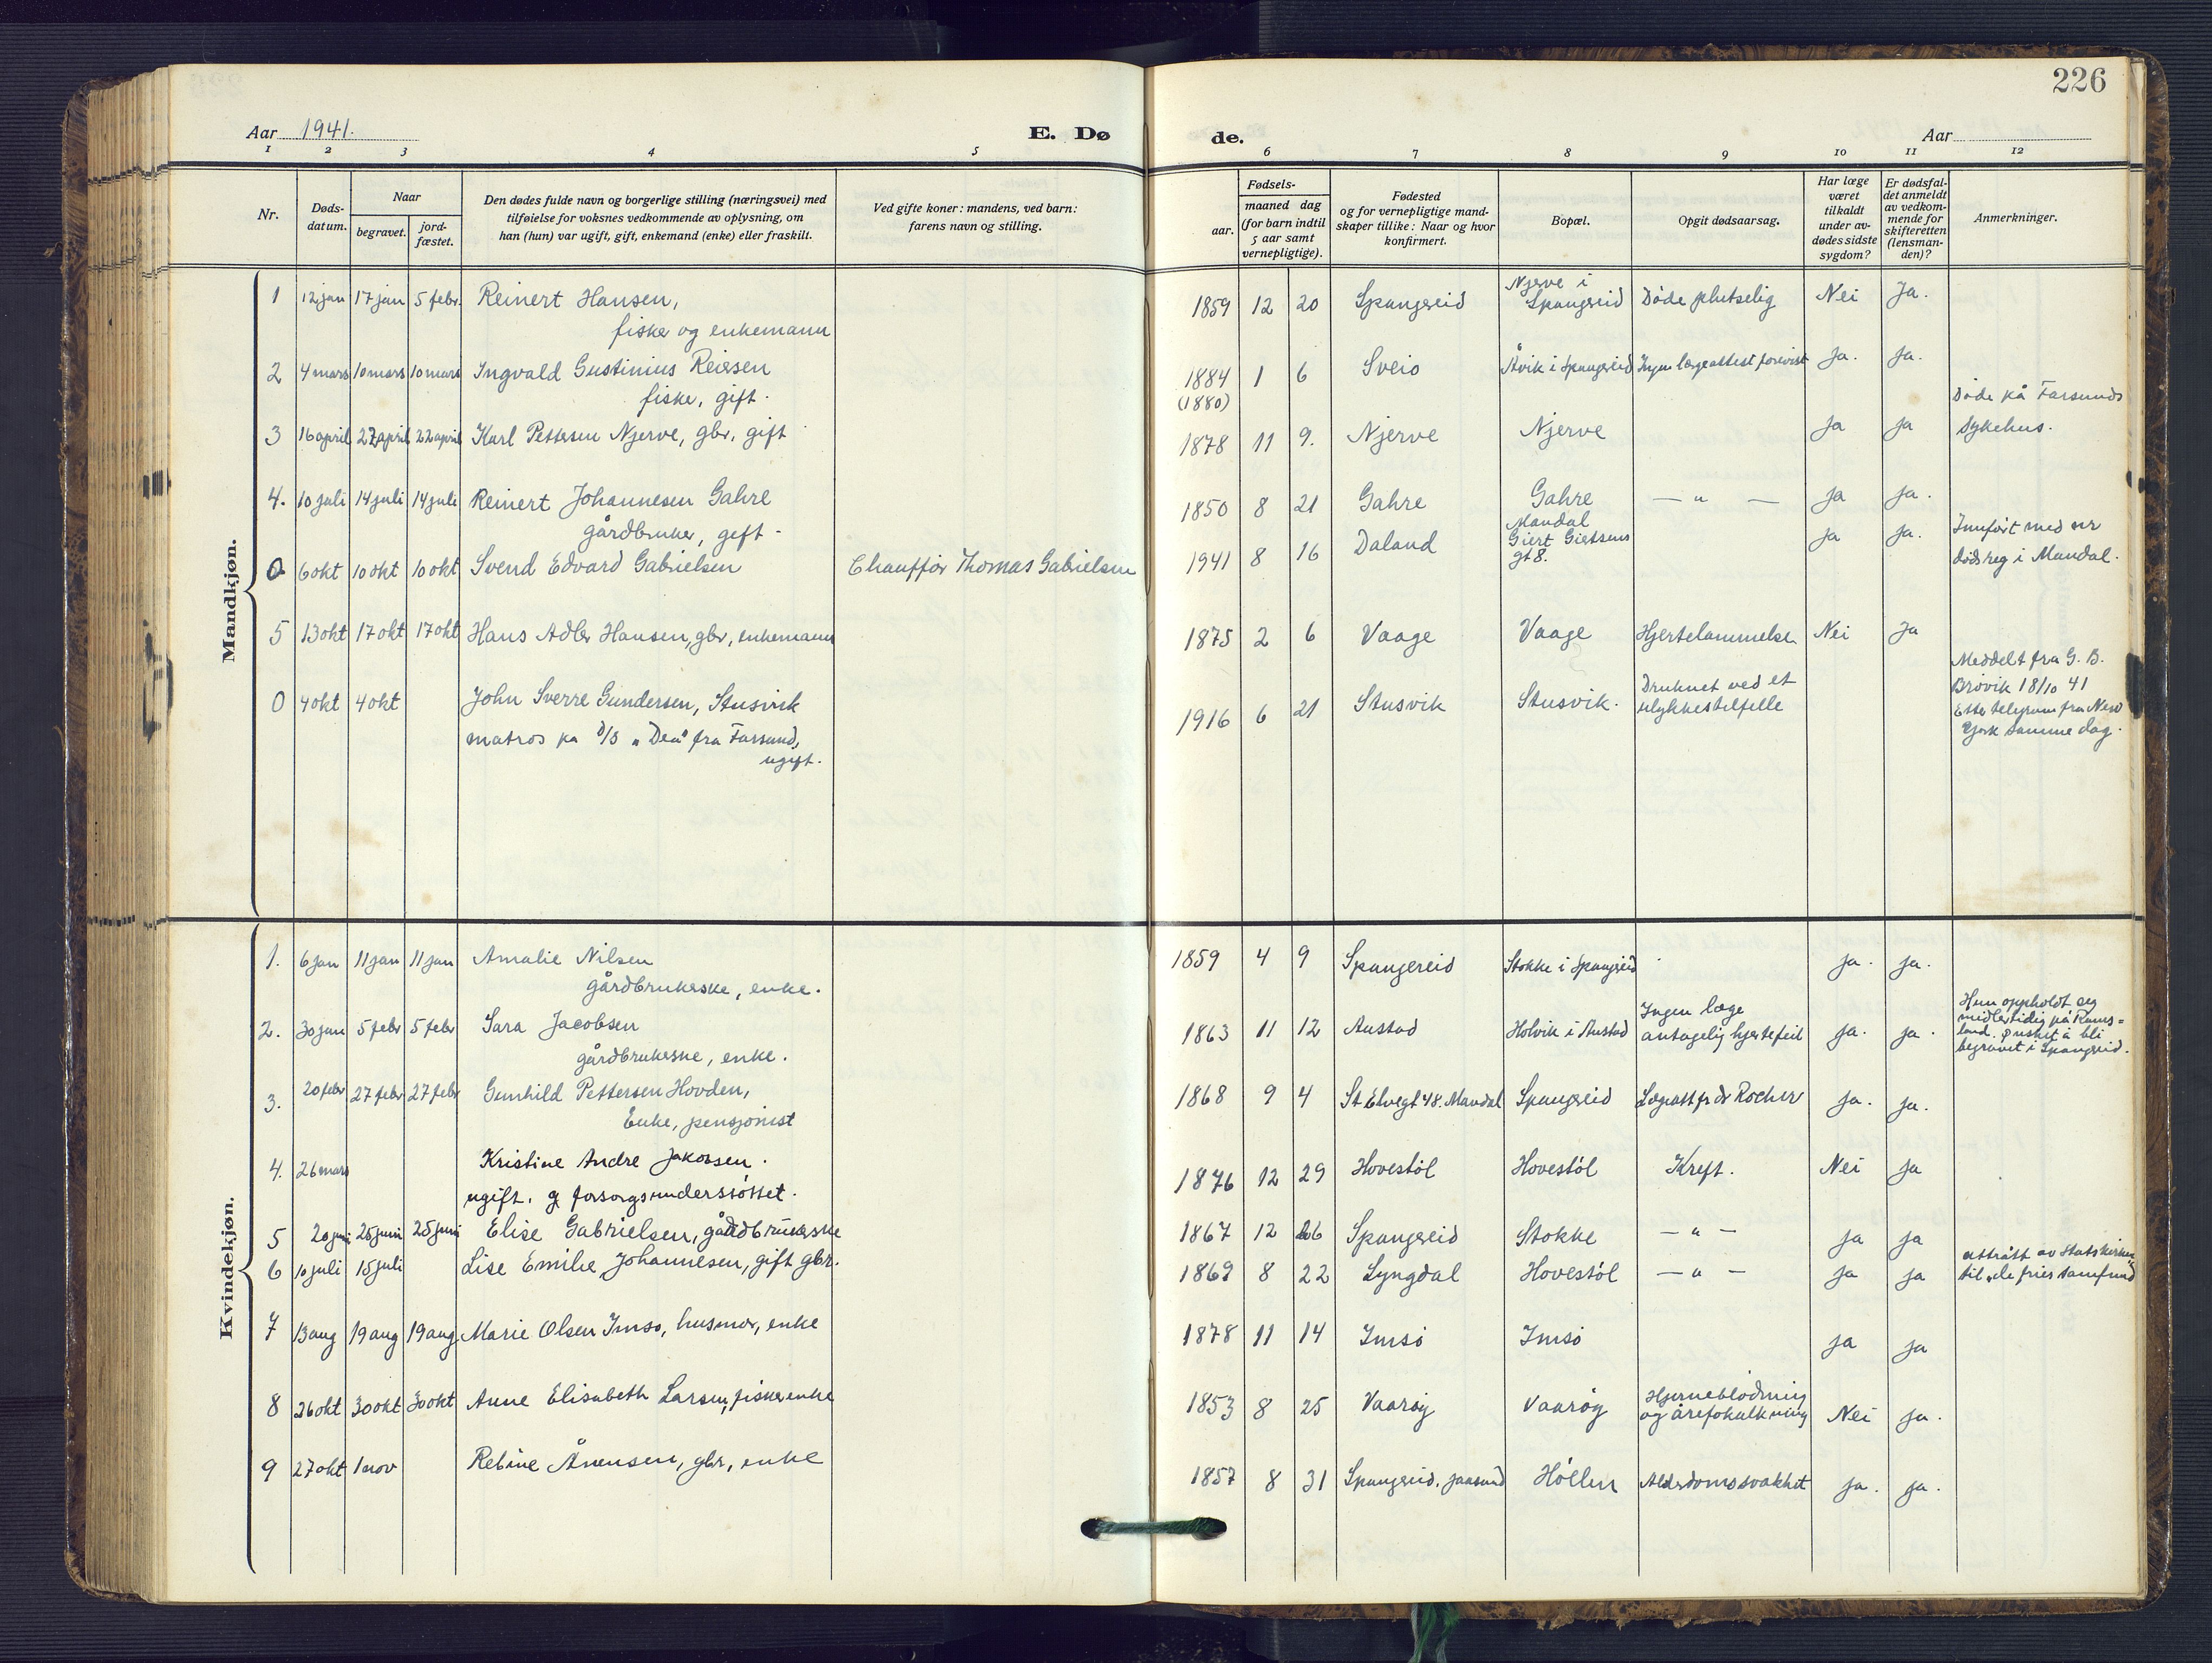 226
Aar 1941.
E. Dø de.
Aar
1 2 3 4 5 6 7 8 9 10 11 12
Nr.
Døds-
datum.
Naar
begravet.
jord-
fæstet.
Den dødes fulde navn og borgerlige stilling (næringsvei) med
tilføielse for voksnes vedkommende av oplysning, om
han (hun) var ugift, gift, enkemand (enke) eller fraskilt.
Ved gifte koner: mandens, ved barn:
farens navn og stilling.
Fødsels-
aar.
maaned dag
(for barn indtil
5 aar samt
vernepligtige).
Fødested
og for vernepligtige mand-
skaper tillike: Naar og hvor
konfirmert.
Bopæl.
Opgit dødsaarsag.
Har læge
været
tilkaldt
under av-
dødes sidste
sygdom?
Er dødsfal-
det anmeldt
av vedkom-
mende for
skifteretten
(lensman-
den)?
Anmerkninger.
Mandkjøn.
1 12 jan 17 jan 5 febr. Reinert Hansen, 1859 12 20 Spangereid Njerve i Spangereid Døde plutselig Nei Ja.
fisker og enkemann
2 4 mars 10 mars 10 mars Ingvald Gustinius Reiersen 1884 1 6 Sveio Åvik i Spangereid Ingen lægeattest forevist Ja. Ja.
fisker, gift. (1880)
3 16 april 22 april 22 april Karl Pettersen Njerve, gbr, gift 1878 11 9. Njerve Njerve Ja Ja Døde på Farsunds
sykehus.
4. 10 juli 14 juli 14 juli Reinert Johannesen Gahre 1850 8 21 Gahre Gahre — " — Ja Ja.
gårdbruker, gift -
0 6 okt 10 okt 10 okt Svend Edvard Gabrielsen Chauffør Thomas Gabrielsen 1941 8 16 Daland Mandal
Giert Giertsens
gt 8. Ja Ja. Innført med nr
dødsreg i Mandal.
5 13 okt 17 okt 17 okt Hans Adler Hansen, gbr, enkemann 1875 2 6 Vaage Vaage Hjertelammelse Nei Ja
0 4 okt 4 okt John Sverre Gundersen, Stusvik 1916 6 21 Stusvik Stusvik. Druknet ved et
ulykkestilfelle Meddelt fra G. B.
Brøvik 18/10 41
Efter telegram fra New
York samme dag.
matros på D/S "Dea" fra Farsund,
ugift.
Kvindekjøn.
1. 6 jan 11 jan 11 jan Amalie Nilsen 1859 4 9 Spangereid Stokke i Spangreid Ja. Ja.
gårdbrukerske, enke.
2. 30 jan 5 febr 5 febr Sara Jacobsen 1863 11 12 Austad Holvik i Austad Ingen læge
antagelig hjertefeil Ja. Ja. Hun oppholdt seg
midlertidig på Rams-
land. Ønsket å bli
begravet i Spangreid.
gårdbrukerske, enke.
3. 20 febr 27 febr 27 febr Gunhild Pettersen Hovden, 1868 9 4 St Elvegt 48. Mandal Spangereid Lægeatt fr dr Rocher Ja. Ja.
Enke, pensjonist
4. 26 mars Kristine Andre Jakobsen. 1876 12 29 Hovestøl Hovestøl Kreft. Nei Ja
ugift. og forsorgsunderstøttet.
5 20 juni 25 juni 25 juni Elise Gabrielsen, gårdbrukerske 1867 12 26 Spangereid Stokke — " — Ja Ja
6 10 juli 15 juli Lise Emilie Johannesen, gift gbr. 1869 8 22 Lyngdal Hovestøl — " — Ja Ja uttrått av Statskirken
til "de fries samfund"
7 13 aug 19 aug 19 aug Marie Olsen Imsø, husmor, enke 1878 11 14 Imsø Imsø Ja Ja
8 26 okt 30 okt 30 okt Anne Elisabeth Larsen, fiskerenke 1853 8 25 Vaarøy Vaarøy Hjerneblødning
og årefokalkning Nei Ja.
9 27 okt 1 nov Rebine Ånensen, gbr, enke 1857 8 31 Spangereid. Jaasund Høllen Alderdomssvakhet Ja. Ja.